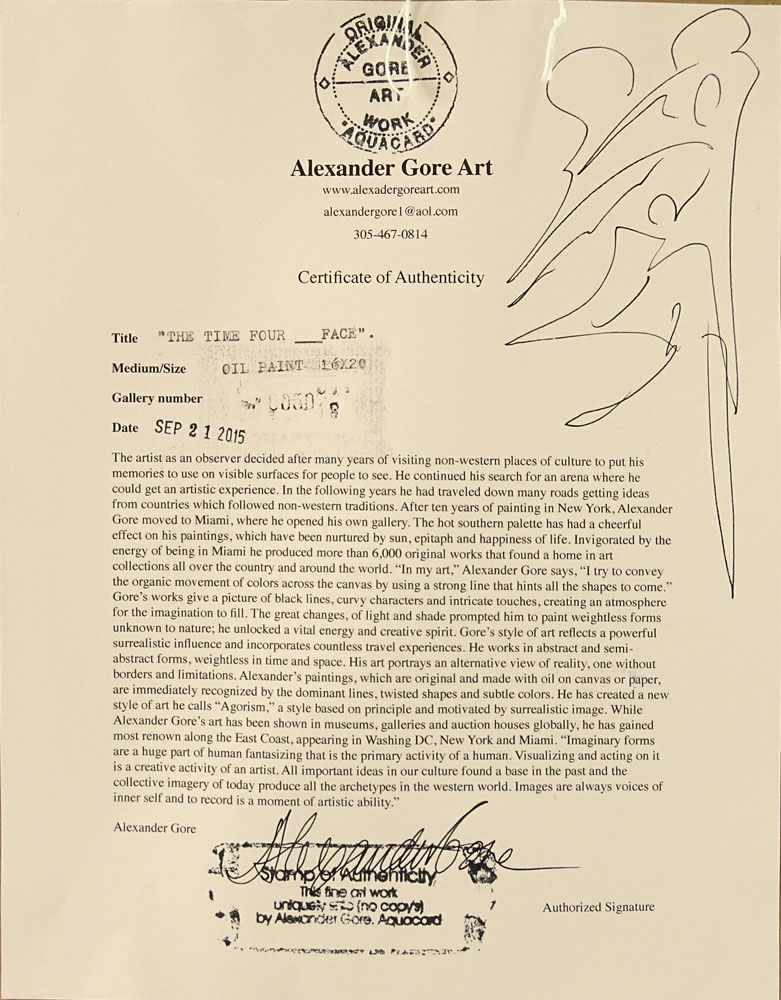 ORIGINAL
ALEXANDER
GORE
ART
WORK
"AQUACARD"
Alexander Gore Art
www.alexadergoreart.com
alexandergore1@aol.com
305-467-0814
Certificate of Authenticity
Title "THE TIME FOUR __FACE".
Medium/Size OIL PAINT 16X20
Gallery number
Date SEP 21 2015
The artist as an observer decided after many years of visiting non-western places of culture to put his
memories to use on visible surfaces for people to see. He continued his search for an arena where he
could get an artistic experience. In the following years he had traveled down many roads getting ideas
from countries which followed non-western traditions. After ten years of painting in New York, Alexander
Gore moved to Miami, where he opened his own gallery. The hot southern palette has had a cheerful
effect on his paintings, which have been nurtured by sun, epitaph and happiness of life. Invigorated by the
energy of being in Miami he produced more than 6,000 original works that found a home in art
collections all over the country and around the world. “In my art,” Alexander Gore says, “I try to convey
the organic movement of colors across the canvas by using a strong line that hints all the shapes to come.”
Gore's works give a picture of black lines, curvy characters and intricate touches, creating an atmosphere
for the imagination to fill. The great changes, of light and shade prompted him to paint weightless forms
unknown to nature; he unlocked a vital energy and creative spirit. Gore's style of art reflects a powerful
surrealistic influence and incorporates countless travel experiences. He works in abstract and semi-
abstract forms, weightless in time and space. His art portrays an alternative view of reality, one without
borders and limitations. Alexander's paintings, which are original and made with oil on canvas or paper,
are immediately recognized by the dominant lines, twisted shapes and subtle colors. He has created a new
style of art he calls “Agorism,” a style based on principle and motivated by surrealistic image. While
Alexander Gore's art has been shown in museums, galleries and auction houses globally, he has gained
most renown along the East Coast, appearing in Washing DC, New York and Miami. “Imaginary forms
are a huge part of human fantasizing that is the primary activity of a human. Visualizing and acting on it
is a creative activity of an artist. All important ideas in our culture found a base in the past and the
collective imagery of today produce all the archetypes in the western world. Images are always voices of
inner self and to record is a moment of artistic ability.”
Alexander Gore
Alexander Gore
Stamp of Authenticity
This fine art work
uniquely (no copys)
by Alexander Gore. Aquacard
Authorized Signature